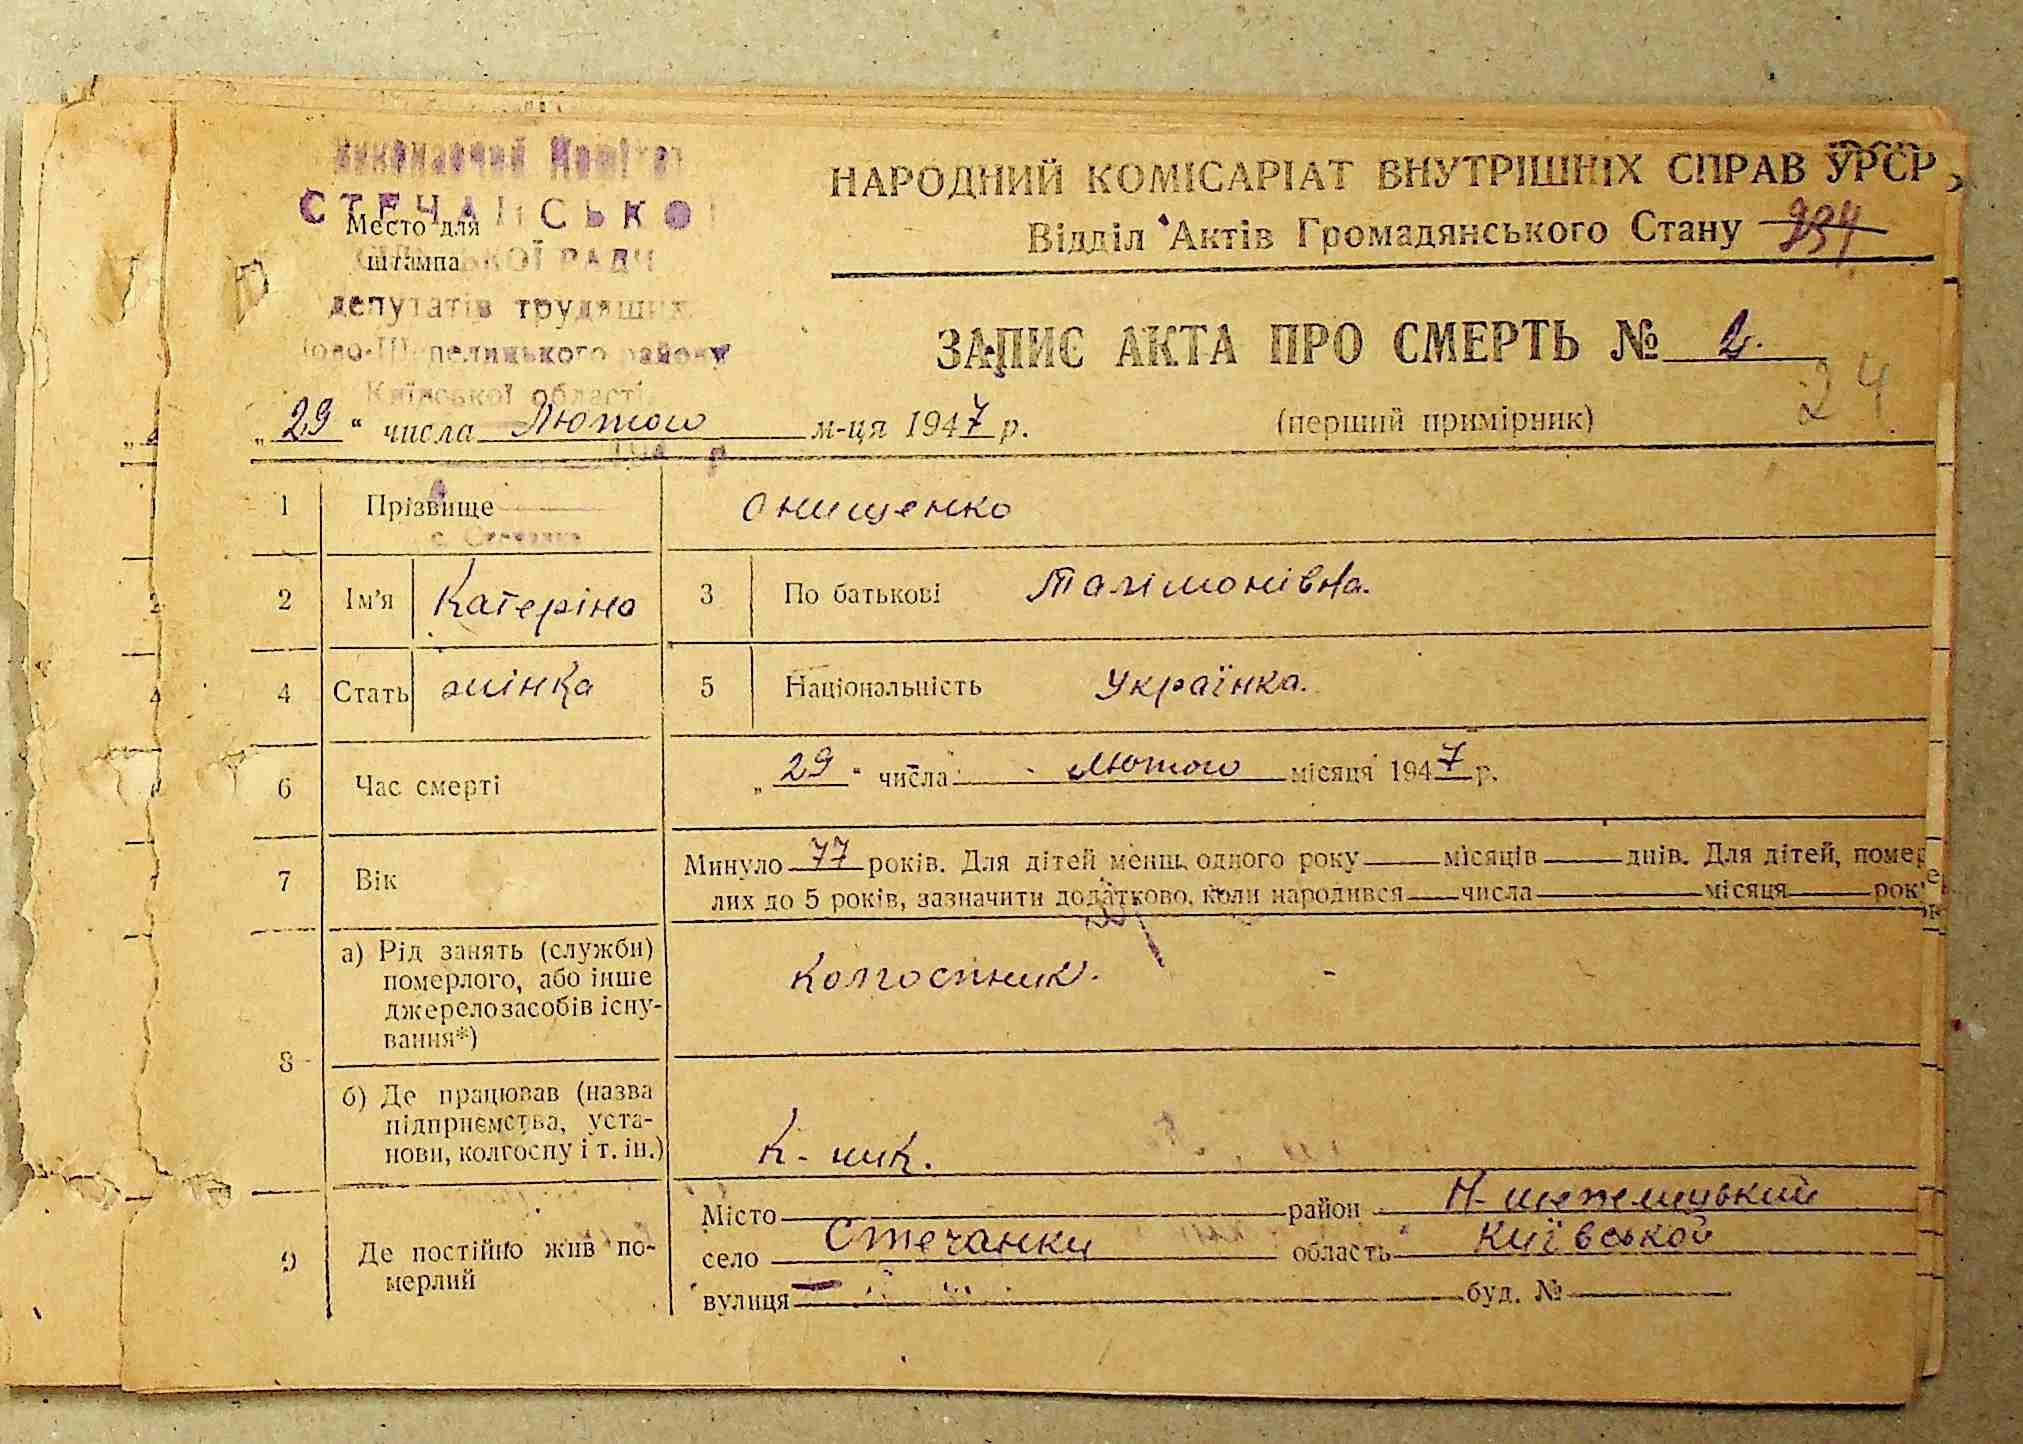 СТЕЧАНСЬКОЇ
Место для
штампа
СІЛЬСЬКОЇ РАДИ
депутатів трудящих
Ново-Шепелицького району
Київської області
НАРОДНИЙ КОМІСАРІАТ ВНУТРІШНІХ СПРАВ УРСР
Відділ Актів Громадянського Стану 234
ЗАПИС АКТА ПРО СМЕРТЬ № 2.
24
„ 29 “ числа Лютого м-ця 1947 р. (перший примірник)
1 Прізвище Онищенко
с. Стечанка
2 Ім'я Катеріна 3 По батькові
4 Стать жінка 5 Національність Українка.
6 Час смерті „ 29 “ числа Лютого місяця 1947 р.
7 Вік Минуло 77 років. Для дітей менш одного року місяців днів. Для дітей, помер
лих до 5 років, зазначити додатково, коли народився числа місяця рок
8 а) Рід занять (служби)
померлого, або інше
джерело засобів існу-
вання*)
Колгоспник.
б) Де працював (назва
підприємства, уста-
нови, колгоспу і т. ін.)
К-ник.
9 Де постійно жив по-
мерлий
Місто район Н-шепелицький
село Стечанки область Київської
вулиця буд. №